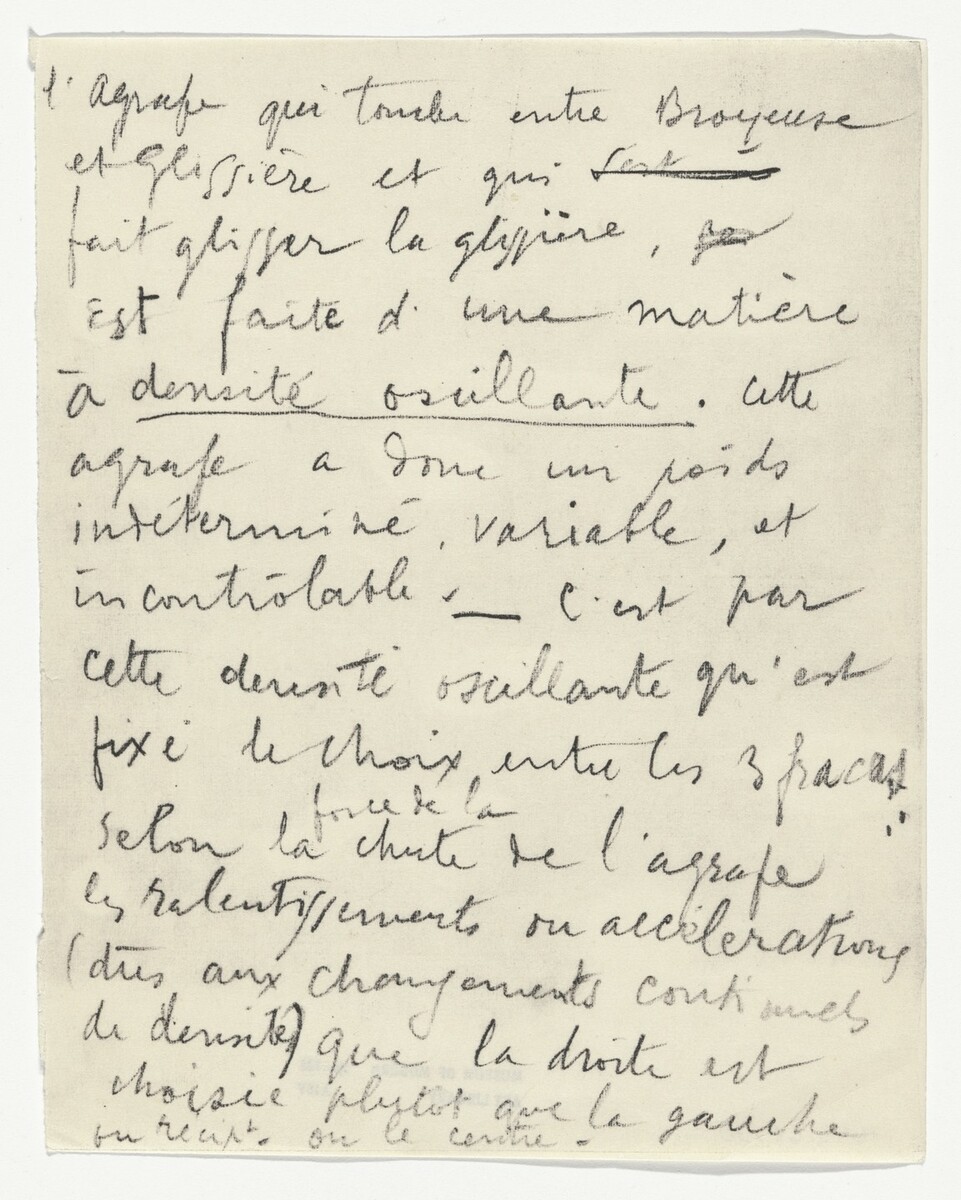 l'agrafe qui tombe entre Broyeuse
et Glissière et qui
fait glisser la glissière,
Est faite d'une matière
à densité oscillante. Cette
agrafe a donc un poids
indéterminé, variable, et
incontrôlable. — C'est par
cette densité oscillante qu'est
fixé le choix entre les 3 fracas
:
force de la
selon la chute de l'agrafe
les ralentissements ou accélérations
(dus aux changements continuels
de densité) que la droite est
choisie plutot que la gauche
ou récipt. ou le centre.